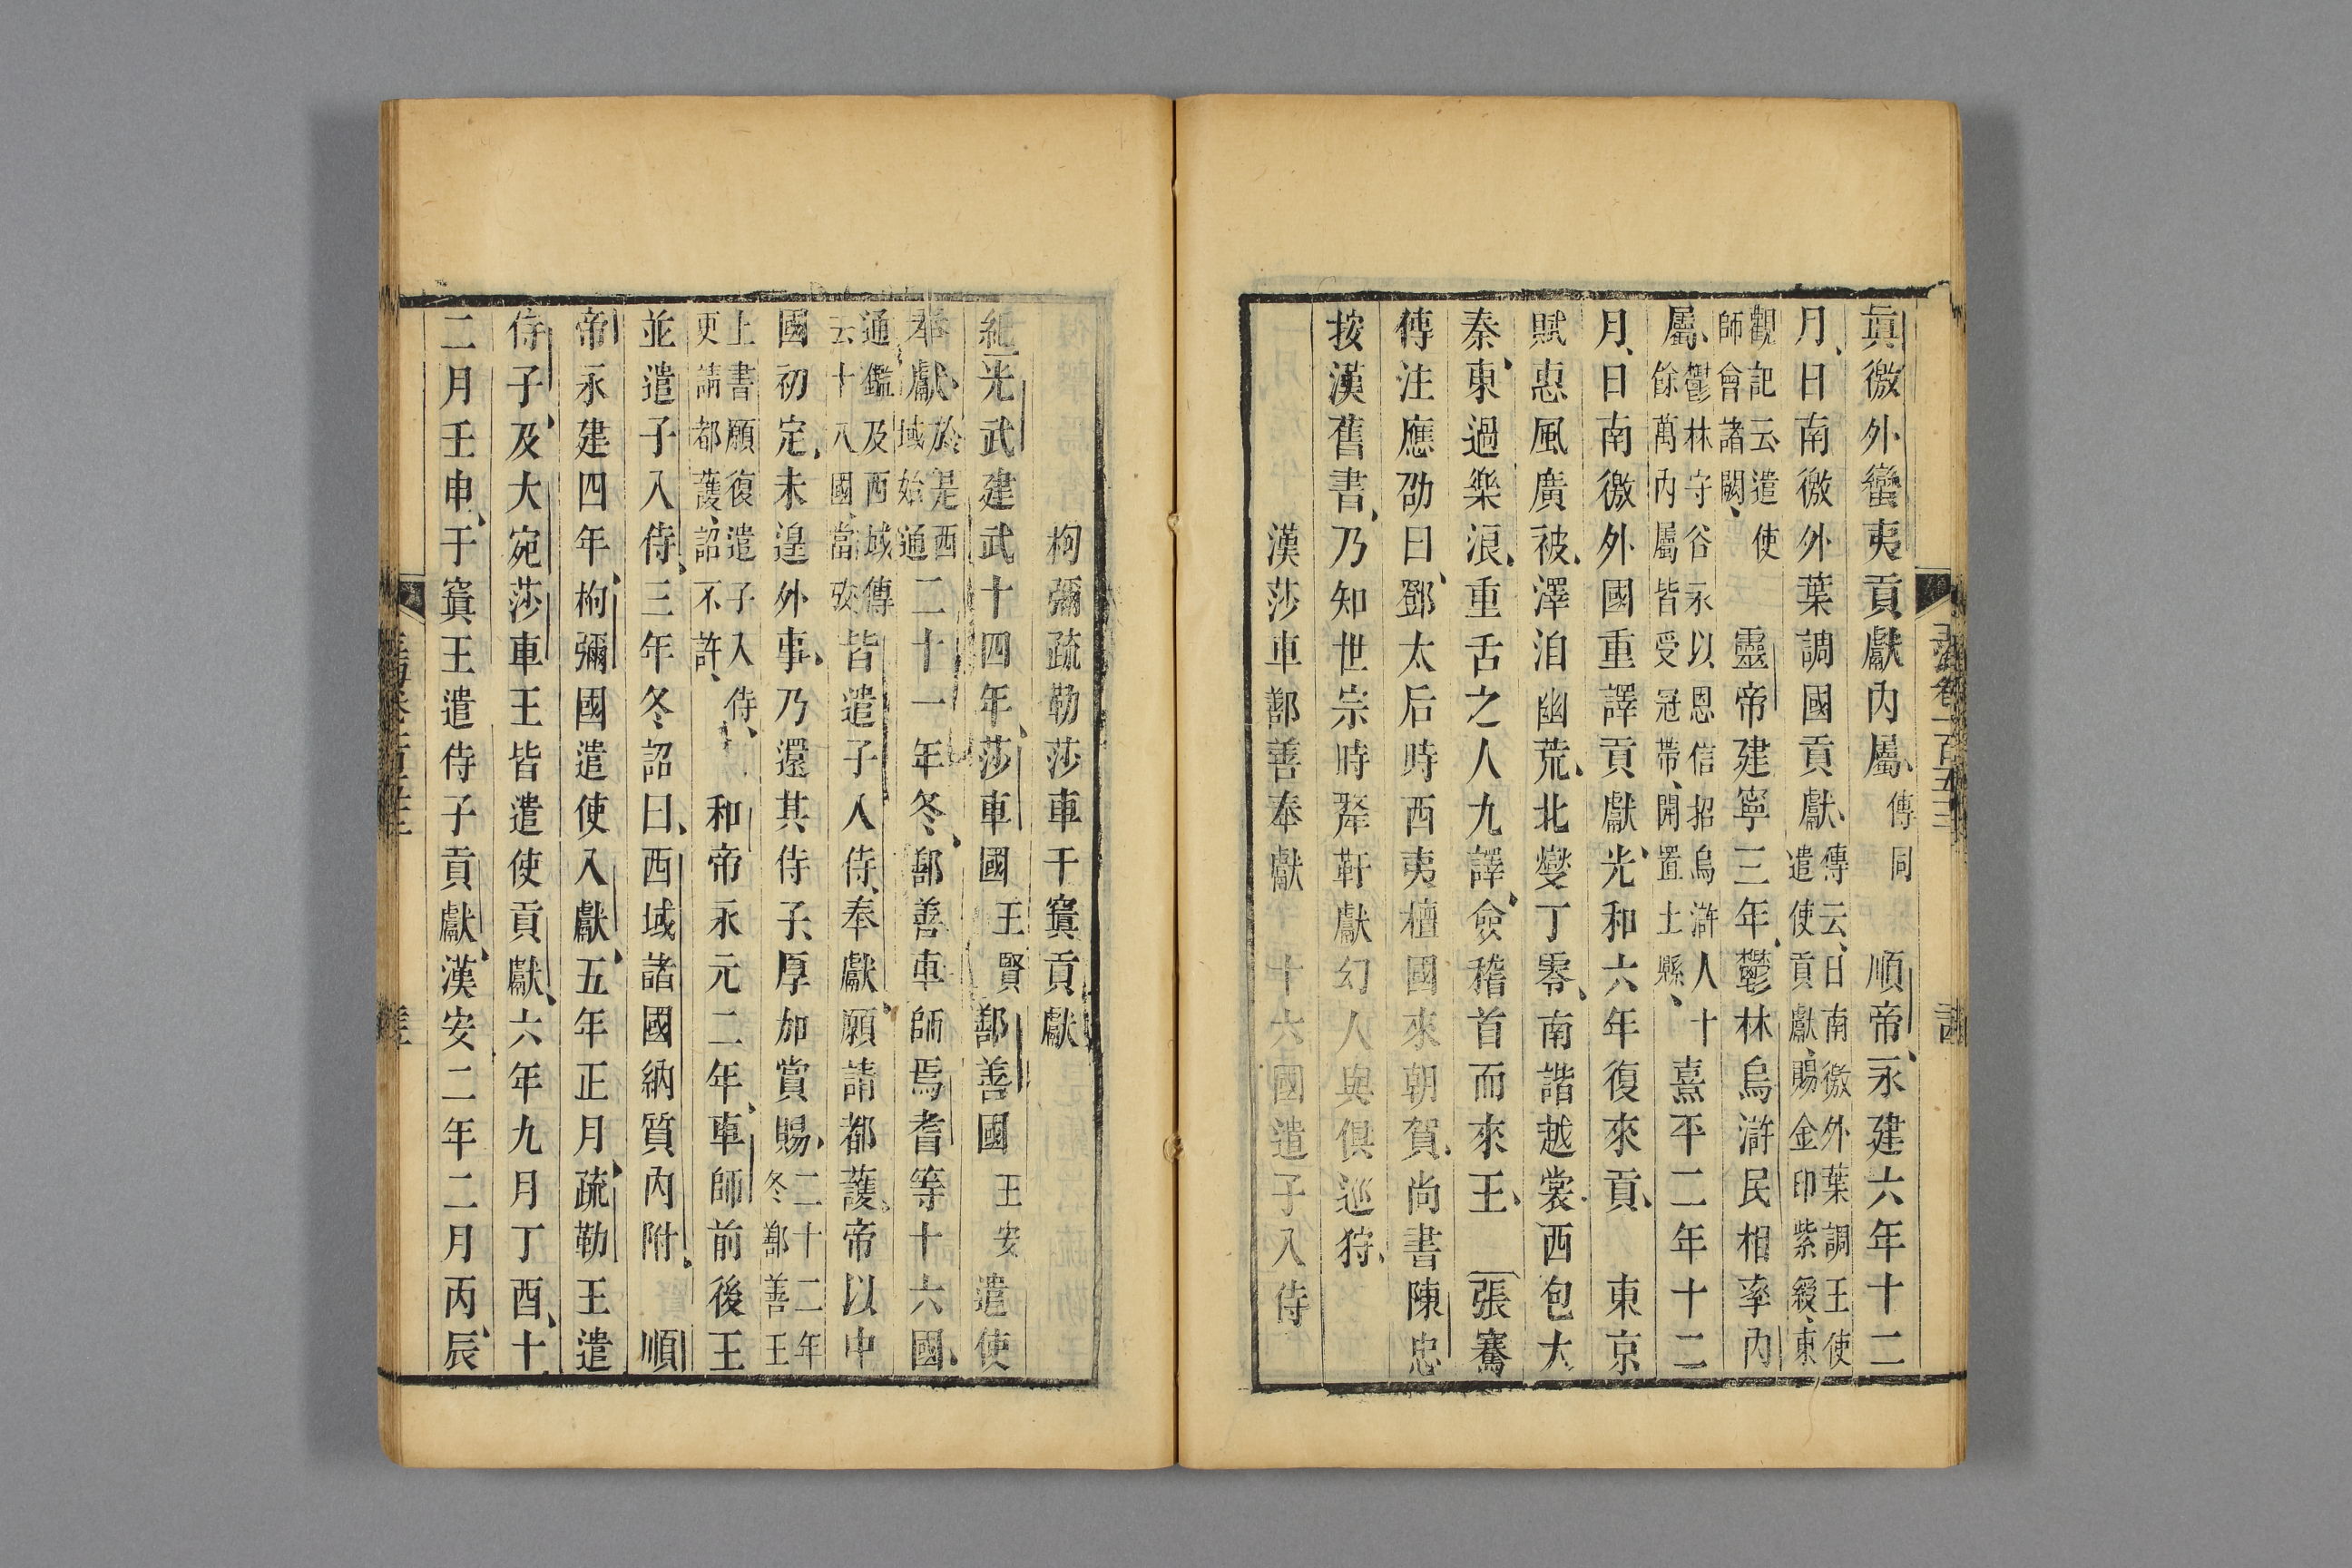 玉海卷一百五十三
眞徼外蠻夷貢獻內屬傳同 順帝永建六年十二
月日南徼外葉調國貢獻傳云日南徼外葉調王使遣使貢獻賜金印紫綬東
觀記云遣使師會諸闕 靈帝建寧三年鬱林烏滸民相率內
屬鬱林守谷永以恩信招烏滸人十餘萬內屬皆受冠帶開置七縣 熹平二年十二
月日南徼外國重譯貢獻光和六年復來貢 東京
賦惠風廣被澤洎幽荒北爕丁零南諧越裳西包大
秦東過樂浪重舌之人九譯僉稽首而來王 張騫
傳注應劭曰鄧太后時西夷檀國來朝賀尚書陳忠
按漢舊書乃知世宗時犛靬獻幻人與俱巡狩
漢莎車鄯善奉獻 十六國遣子入侍
枸彌疏勒莎車于窴貢獻
紀光武建武十四年莎車國王賢鄯善國王安遣使
奉獻於是西域始通二十一年冬鄯善車師焉耆等十六國
通鑑及西域傳云十八國當攷皆遣子入侍奉獻願請都護帝以中
國初定未遑外事乃還其侍子厚加賞賜二十二年冬鄯善王
上書願復遣子入侍更請都護詔不許 和帝永元二年車師前後王
並遣子入侍三年冬詔曰西域諸國納質內附 順
帝永建四年枸彌國遣使入獻五年正月疏勒王遣
侍子及大宛莎車王皆遣使貢獻六年九月丁酉十
二月壬申于窴王遣侍子貢獻漢安二年二月丙辰